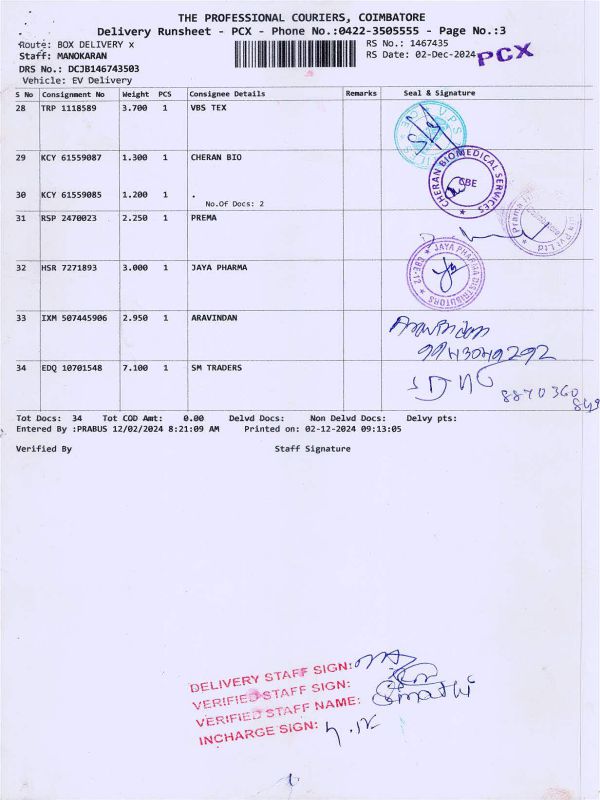 THE PROFESSIONAL COURIERS, COIMBATORE
Delivery Runsheet - PCX - Phone No.:0422-3505555 - Page No.:3
Route: BOX DELIVERY x
RS No.: 1467435
Staff: MANOKARAN
RS Date: 02-Dec-2024
PCX
DRS No.: DCJB146743503
Vehicle: EV Delivery
S No Consignment No Weight PCS Consignee Details Remarks Seal & Signature
28 TRP 1118589 3.700 1 VBS TEX
29 KCY 61559087 1.300 1 CHERAN BIO
CHERAN BIOMEDICAL SERVICES
CBE
30 KCY 61559085 1.200 1 .
No.Of Docs: 2
31 RSP 2470023 2.250 1 PREMA
32 HSR 7271893 3.000 1 JAYA PHARMA
JAYA PHARMA DISTRIBUTORS
CBE-12
33 IXM 507445906 2.950 1 ARAVINDAN
Aravindan
9943049292
34 EDQ 10701548 7.100 1 SM TRADERS
8870360
849
Tot Docs: 34 Tot COD Amt: 0.00 Delvd Docs: Non Delvd Docs: Delvy pts:
Entered By :PRABUS 12/02/2024 8:21:09 AM Printed on: 02-12-2024 09:13:05
Verified By Staff Signature
DELIVERY STAFF SIGN:
VERIFIED STAFF SIGN:
VERIFIED STAFF NAME:
INCHARGE SIGN: